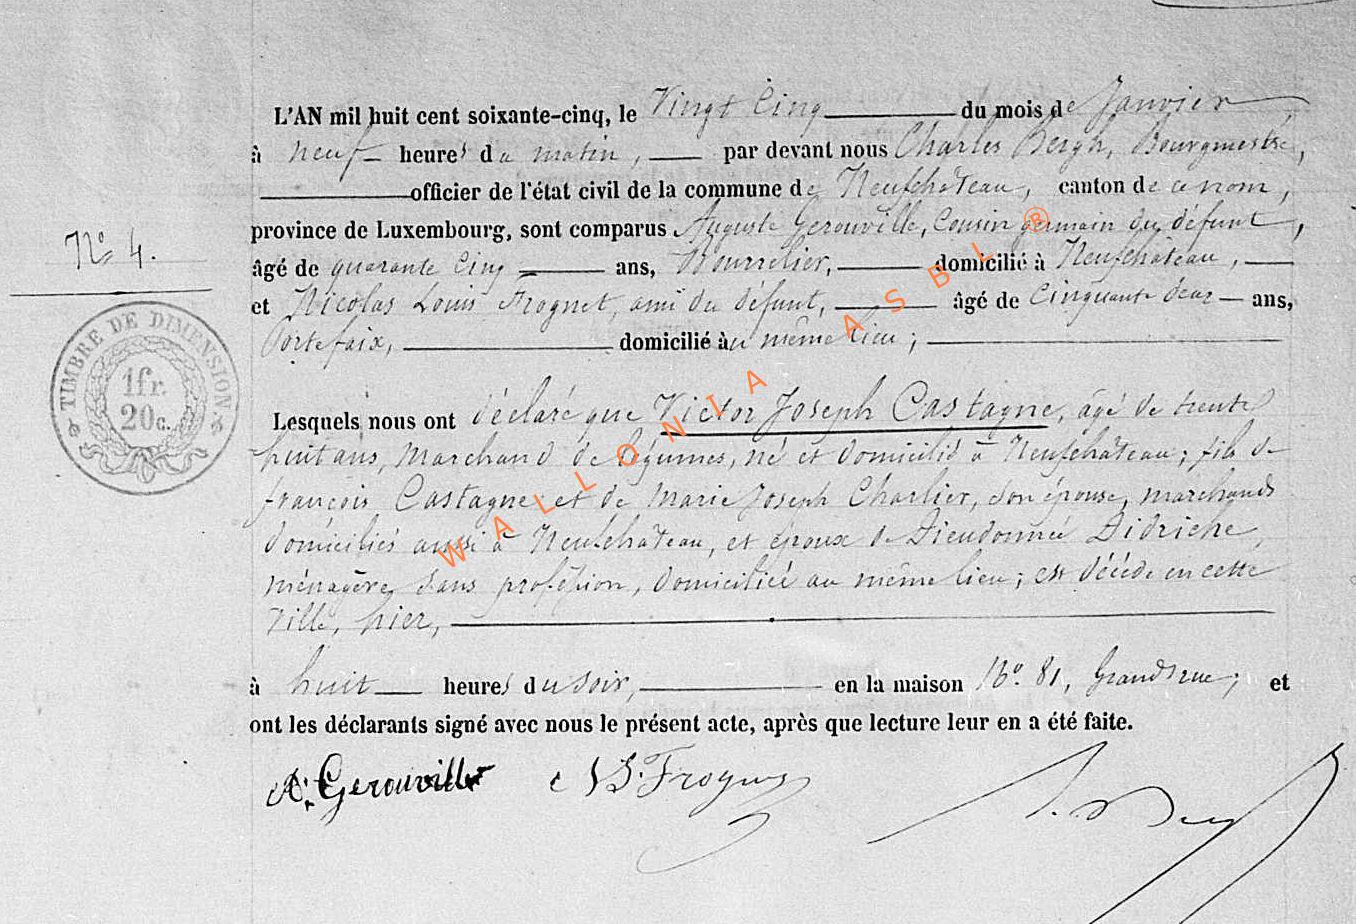 L'AN mil huit cent soixante-cinq, le Vingt Cinq du mois de Janvier
à neuf heures du matin, par devant nous Charles Bergh, Bourgmestre,
officier de l'état civil de la commune de Neufchâteau, canton de ce nom,
province de Luxembourg, sont comparus Auguste Gerouville, Cousin germain du défunt,
N° 4.
âgé de quarante Cinq ans, Bourrelier, domicilié à Neufchâteau,
et Nicolas Louis Frognet, ami du défunt, âgé de Cinquante deux ans,
Portefaix, domicilié au même lieu;
TIMBRE DE DIMENSION.
1fr.
20c.
Lesquels nous ont déclaré que Victor Joseph Castagne, âgé de trente
huit ans, Marchand de légumes, né et domicilié à Neufchâteau; fils de
françois Castagne et de Marie Joseph Charlier, son épouse, marchands
domiciliés aussi à Neufchâteau, et époux de Dieudonnée Didriche,
ménagère sans profession, domiciliée au même lieu; est décédé en cette
Ville, hier,
à huit heures du soir, en la maison N° 81, Grand'rue; et
ont les déclarants signé avec nous le présent acte, après que lecture leur en a été faite.
A. Gerouville
WALLONIA ASBL ®